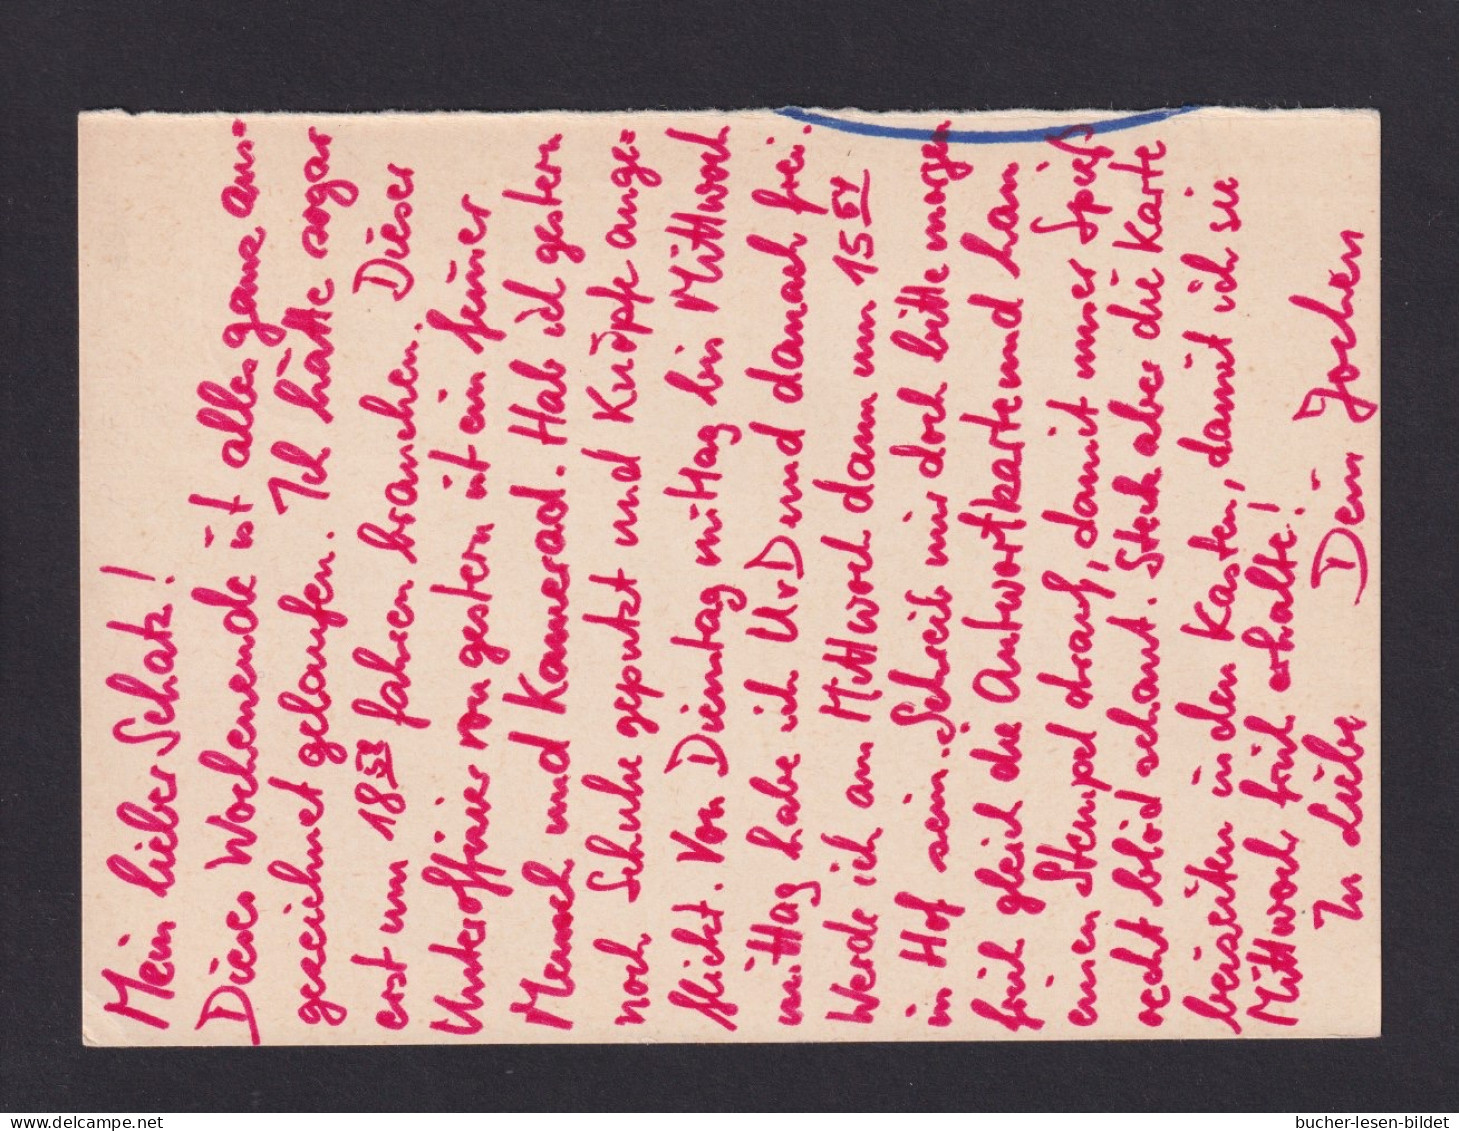 Mein lieber Schatz!
Dieses Wochenende ist alles ganz aus-
gezeichnet gelaufen. Ich hätte sogar
erst um 18 53 fahren brauchen. Dieser
Unteroffizier von gestern ist ein feiner
Mensch und Kamerad. Hab ich gestern
noch Schuhe geputzt und Knöpfe ange=
flickt. Von Dienstag mittag bis Mittwoch
mittag habe ich UvD und danach frei.
Werde ich am Mittwoch dann um 15 54
in Hof sein. Schreib mir doch bitte morgen
früh gleich die Antwortkarte und hau
einen Stempel drauf, damit unser Spieß
recht blöd schaut. Steck aber die Karte
beizeiten in den Kasten, damit ich sie
Mittwoch früh erhalte!
In Liebe Dein Jochen
bucher-lesen-bildet